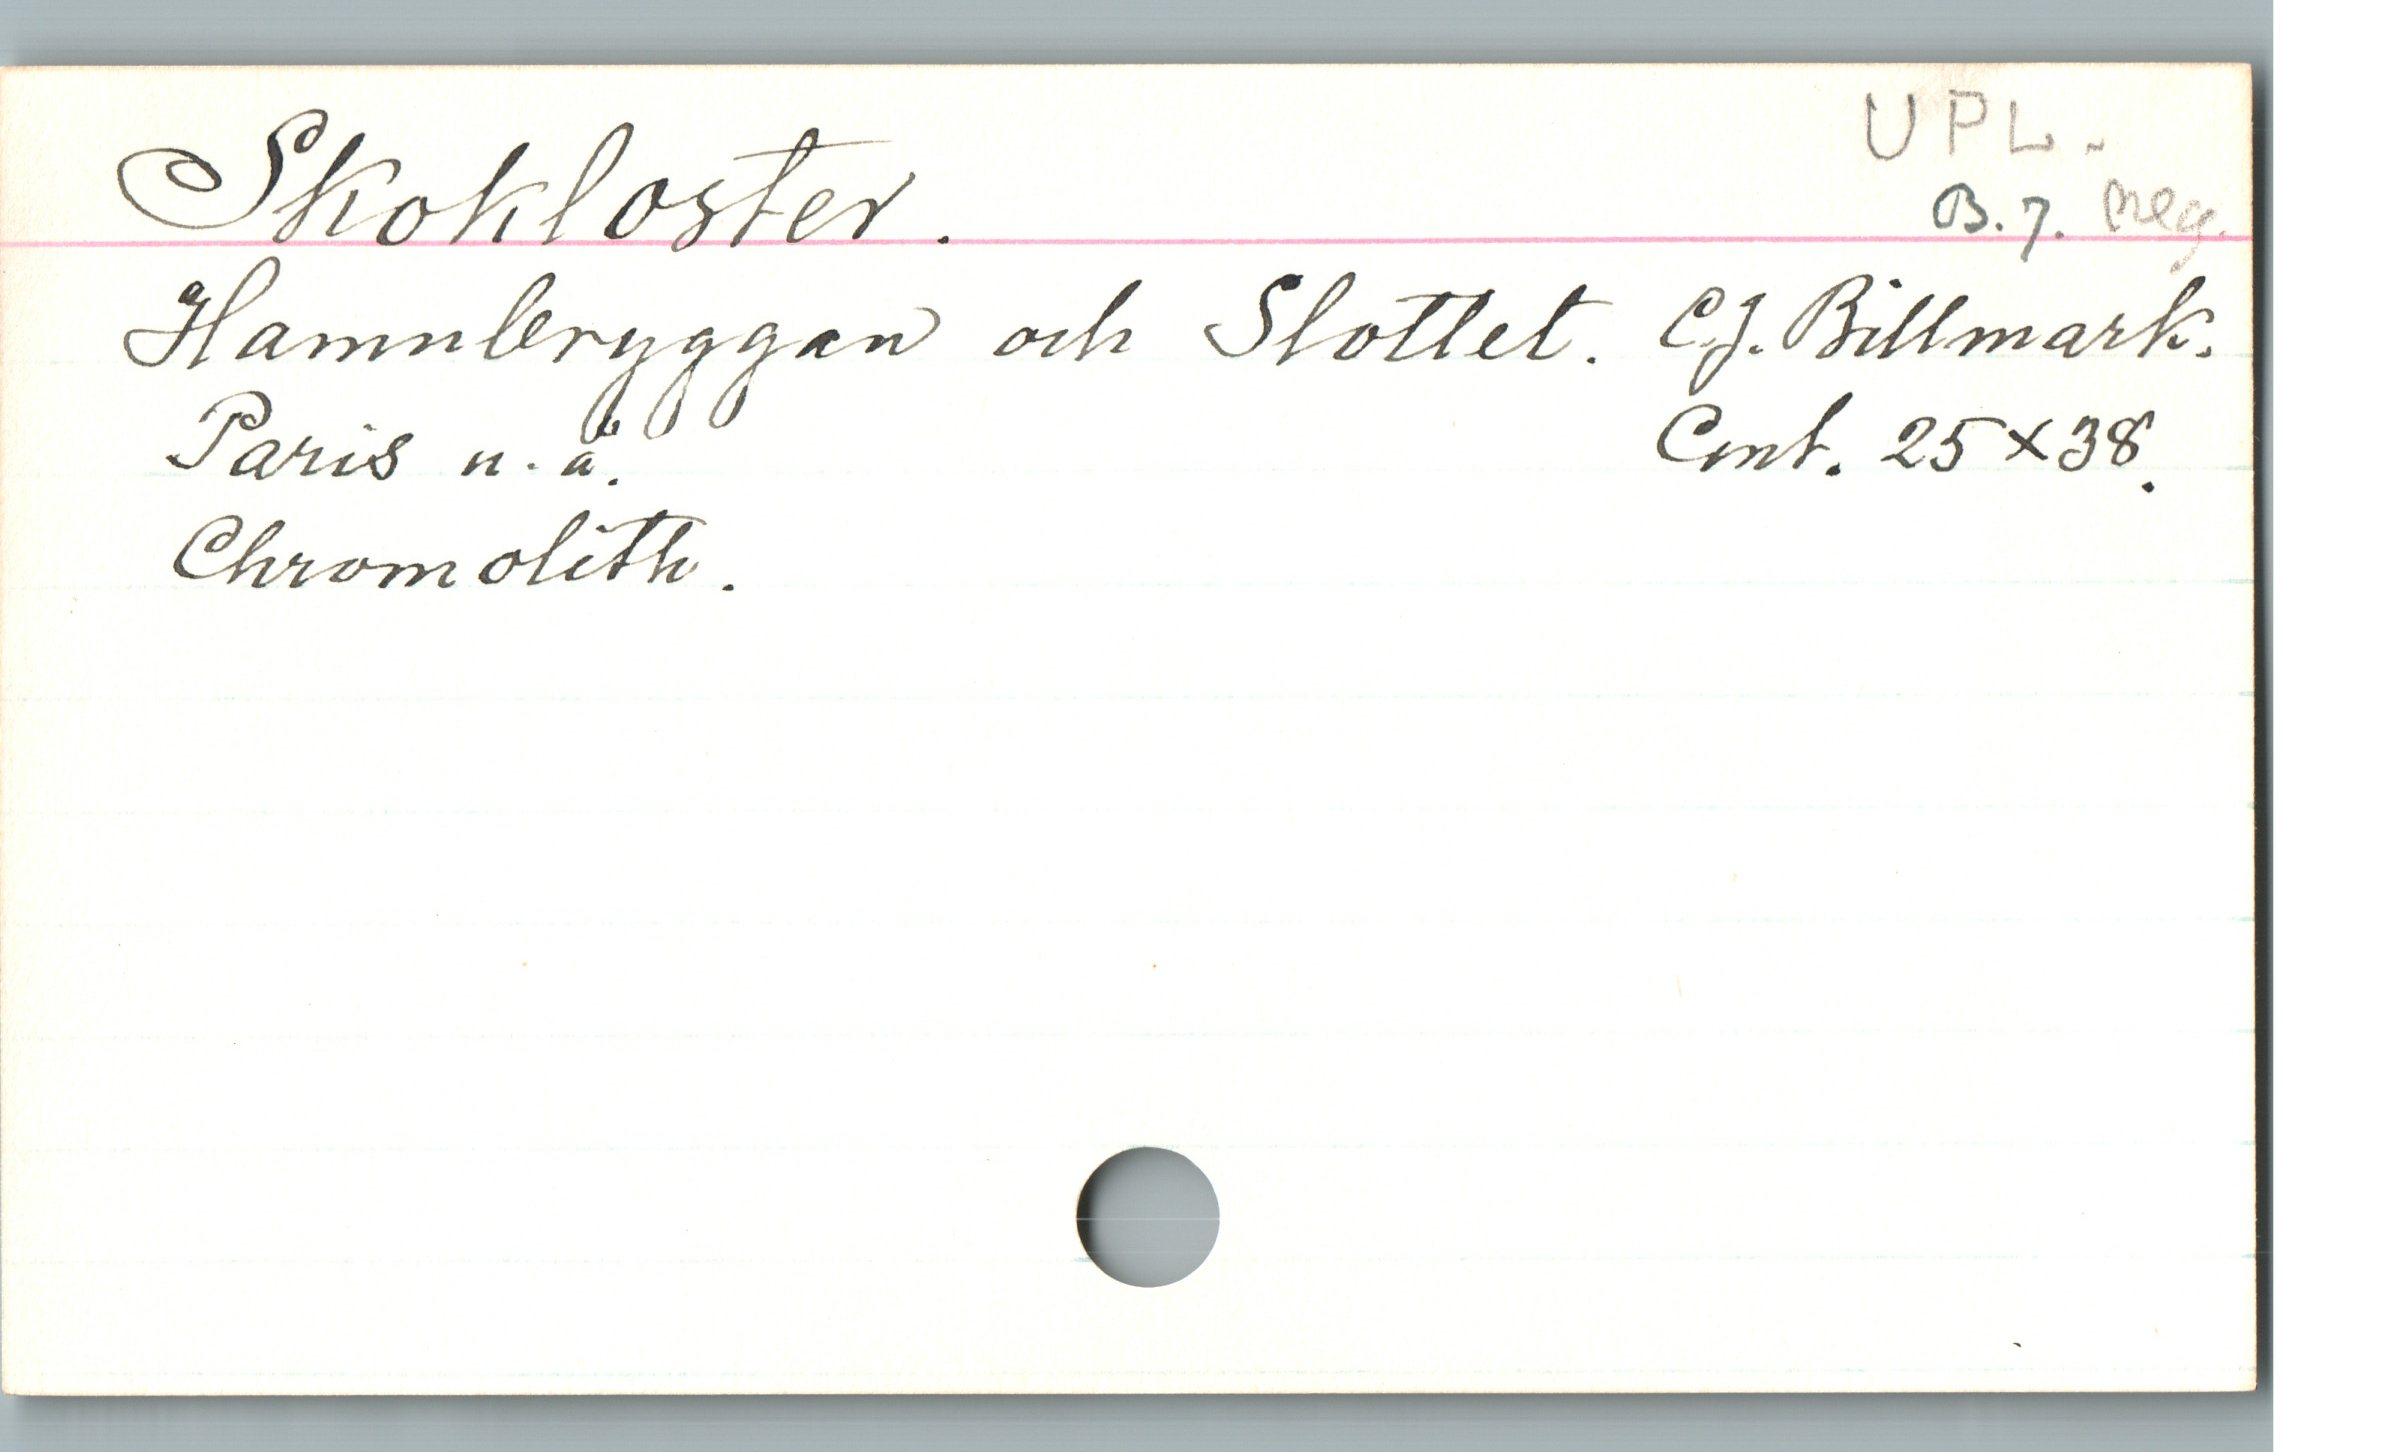 UPL.
Skokloster.
B.7. neg.
Hamnbryggan och Slottet. C.J. Billmark.
Paris u. å. Cmt. 25×38.
Chromolith.